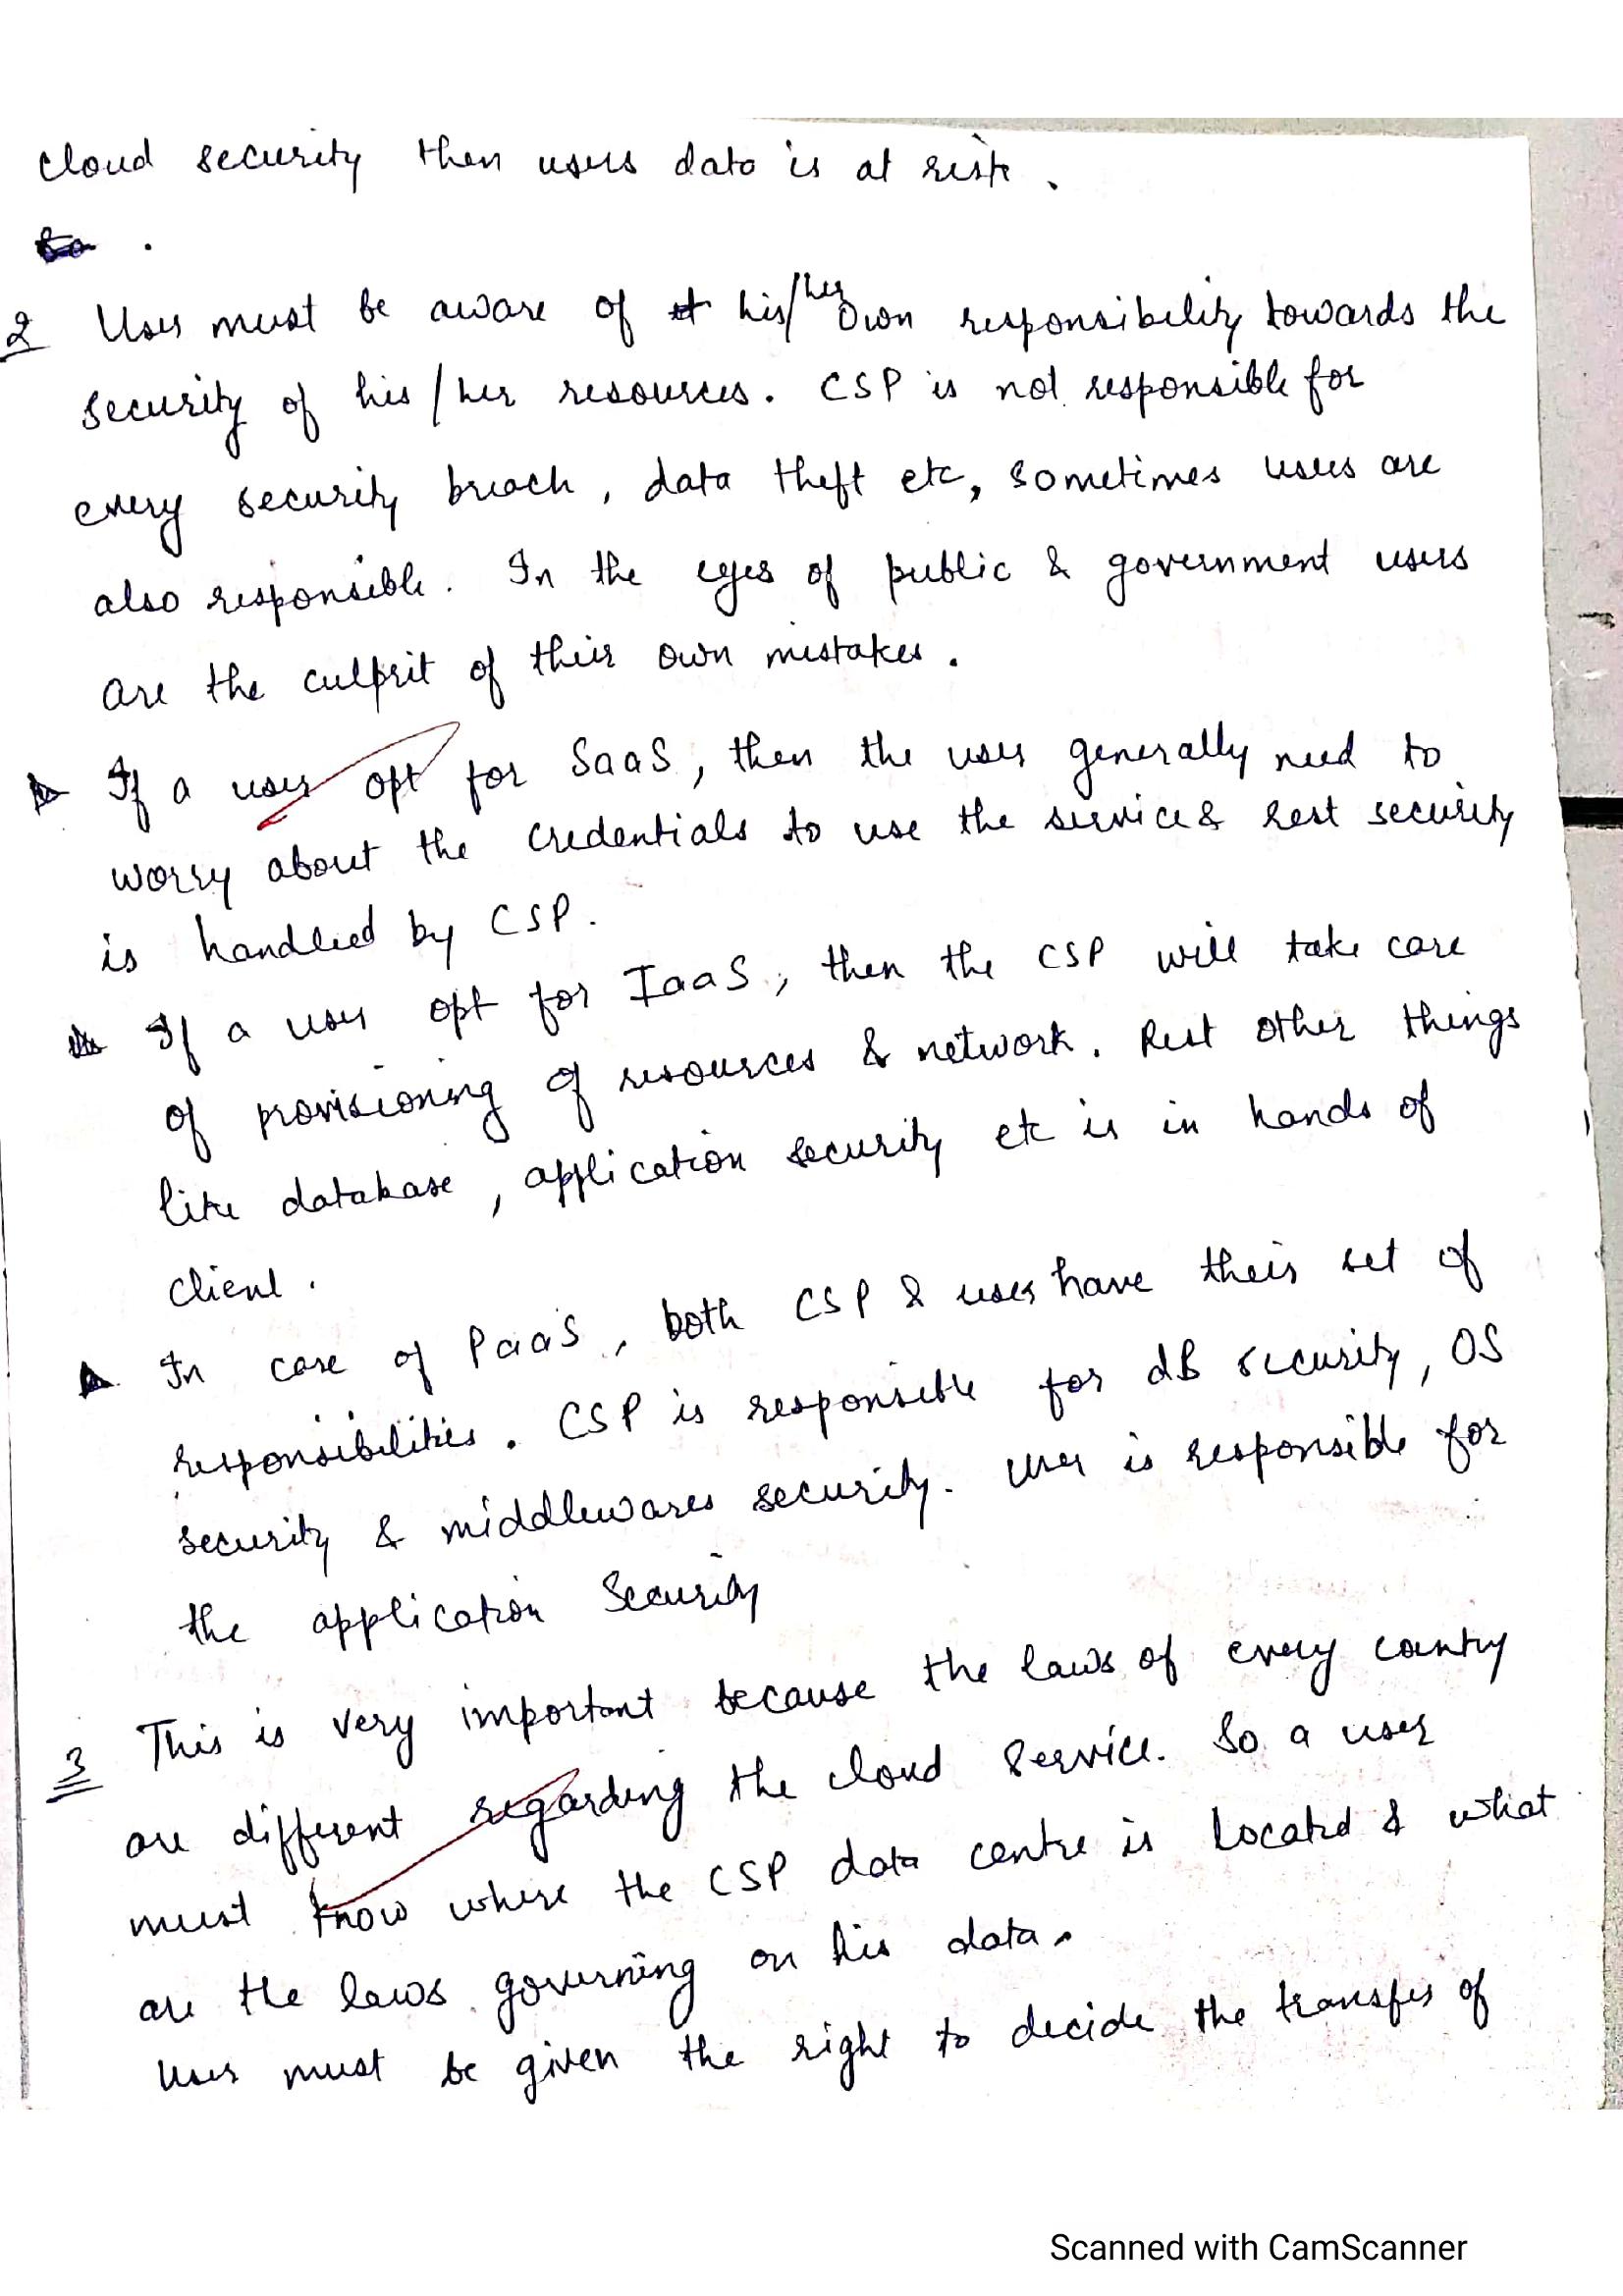 cloud security then users data is at risk.
2 User must be aware of his/her own responsibility towards the
security of his/her resources. CSP is not responsible for
every security breach, data theft etc, sometimes users are
also responsible. In the eyes of public & government users
are the culprit of their own mistakes.
If a user opt for SaaS, then the user generally need to
worry about the credentials to use the service & rest security
is handled by CSP.
If a user opt for IaaS, then the CSP will take care
of provisioning of resources & network. Rest other things
like database, application security etc is in hands of
client.
In case of PaaS, both CSP & user have their set of
responsibilities. CSP is responsible for dB security, OS
security & middlewares security. User is responsible for
the application security
3 This is very important because the laws of every country
are different regarding the cloud service. So a user
must know where the CSP data centre is located & what
are the laws governing on his data.
User must be given the right to decide the transfer of
Scanned with CamScanner